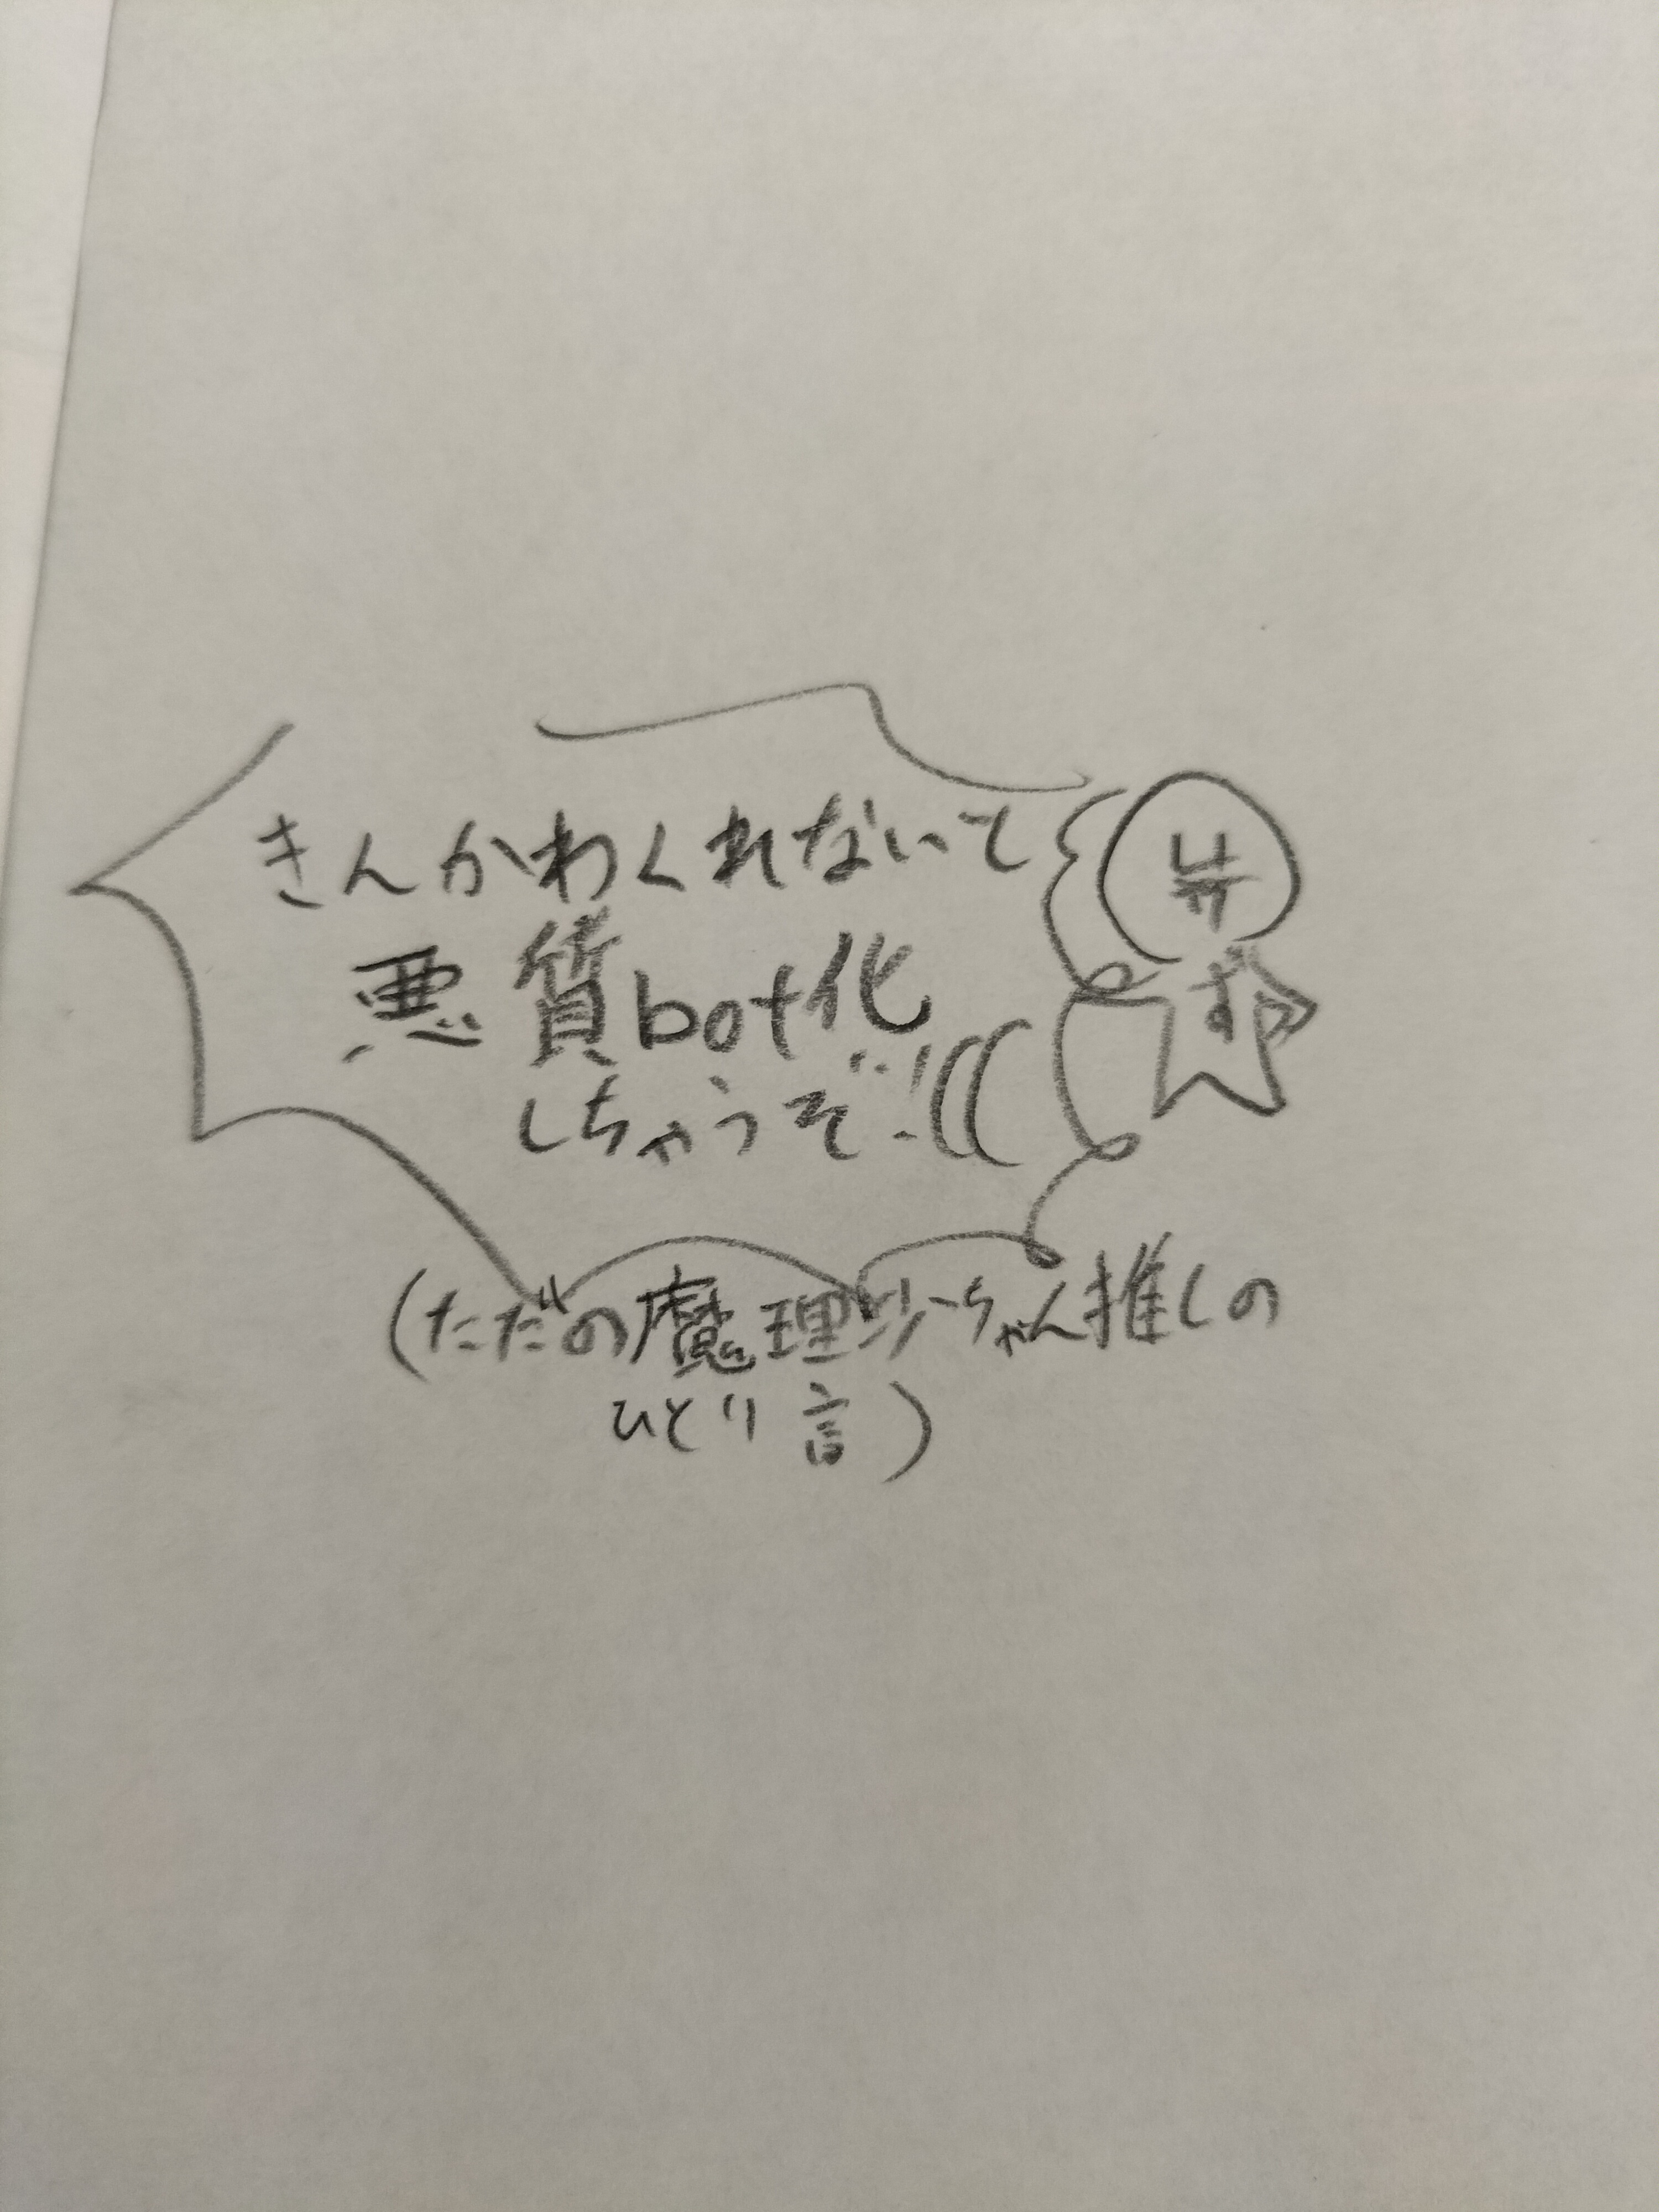 きんかわくれないと
悪質bot化
しちゃうぞ!((
(ただの魔理沙ちゃん推しの
ひとり言)